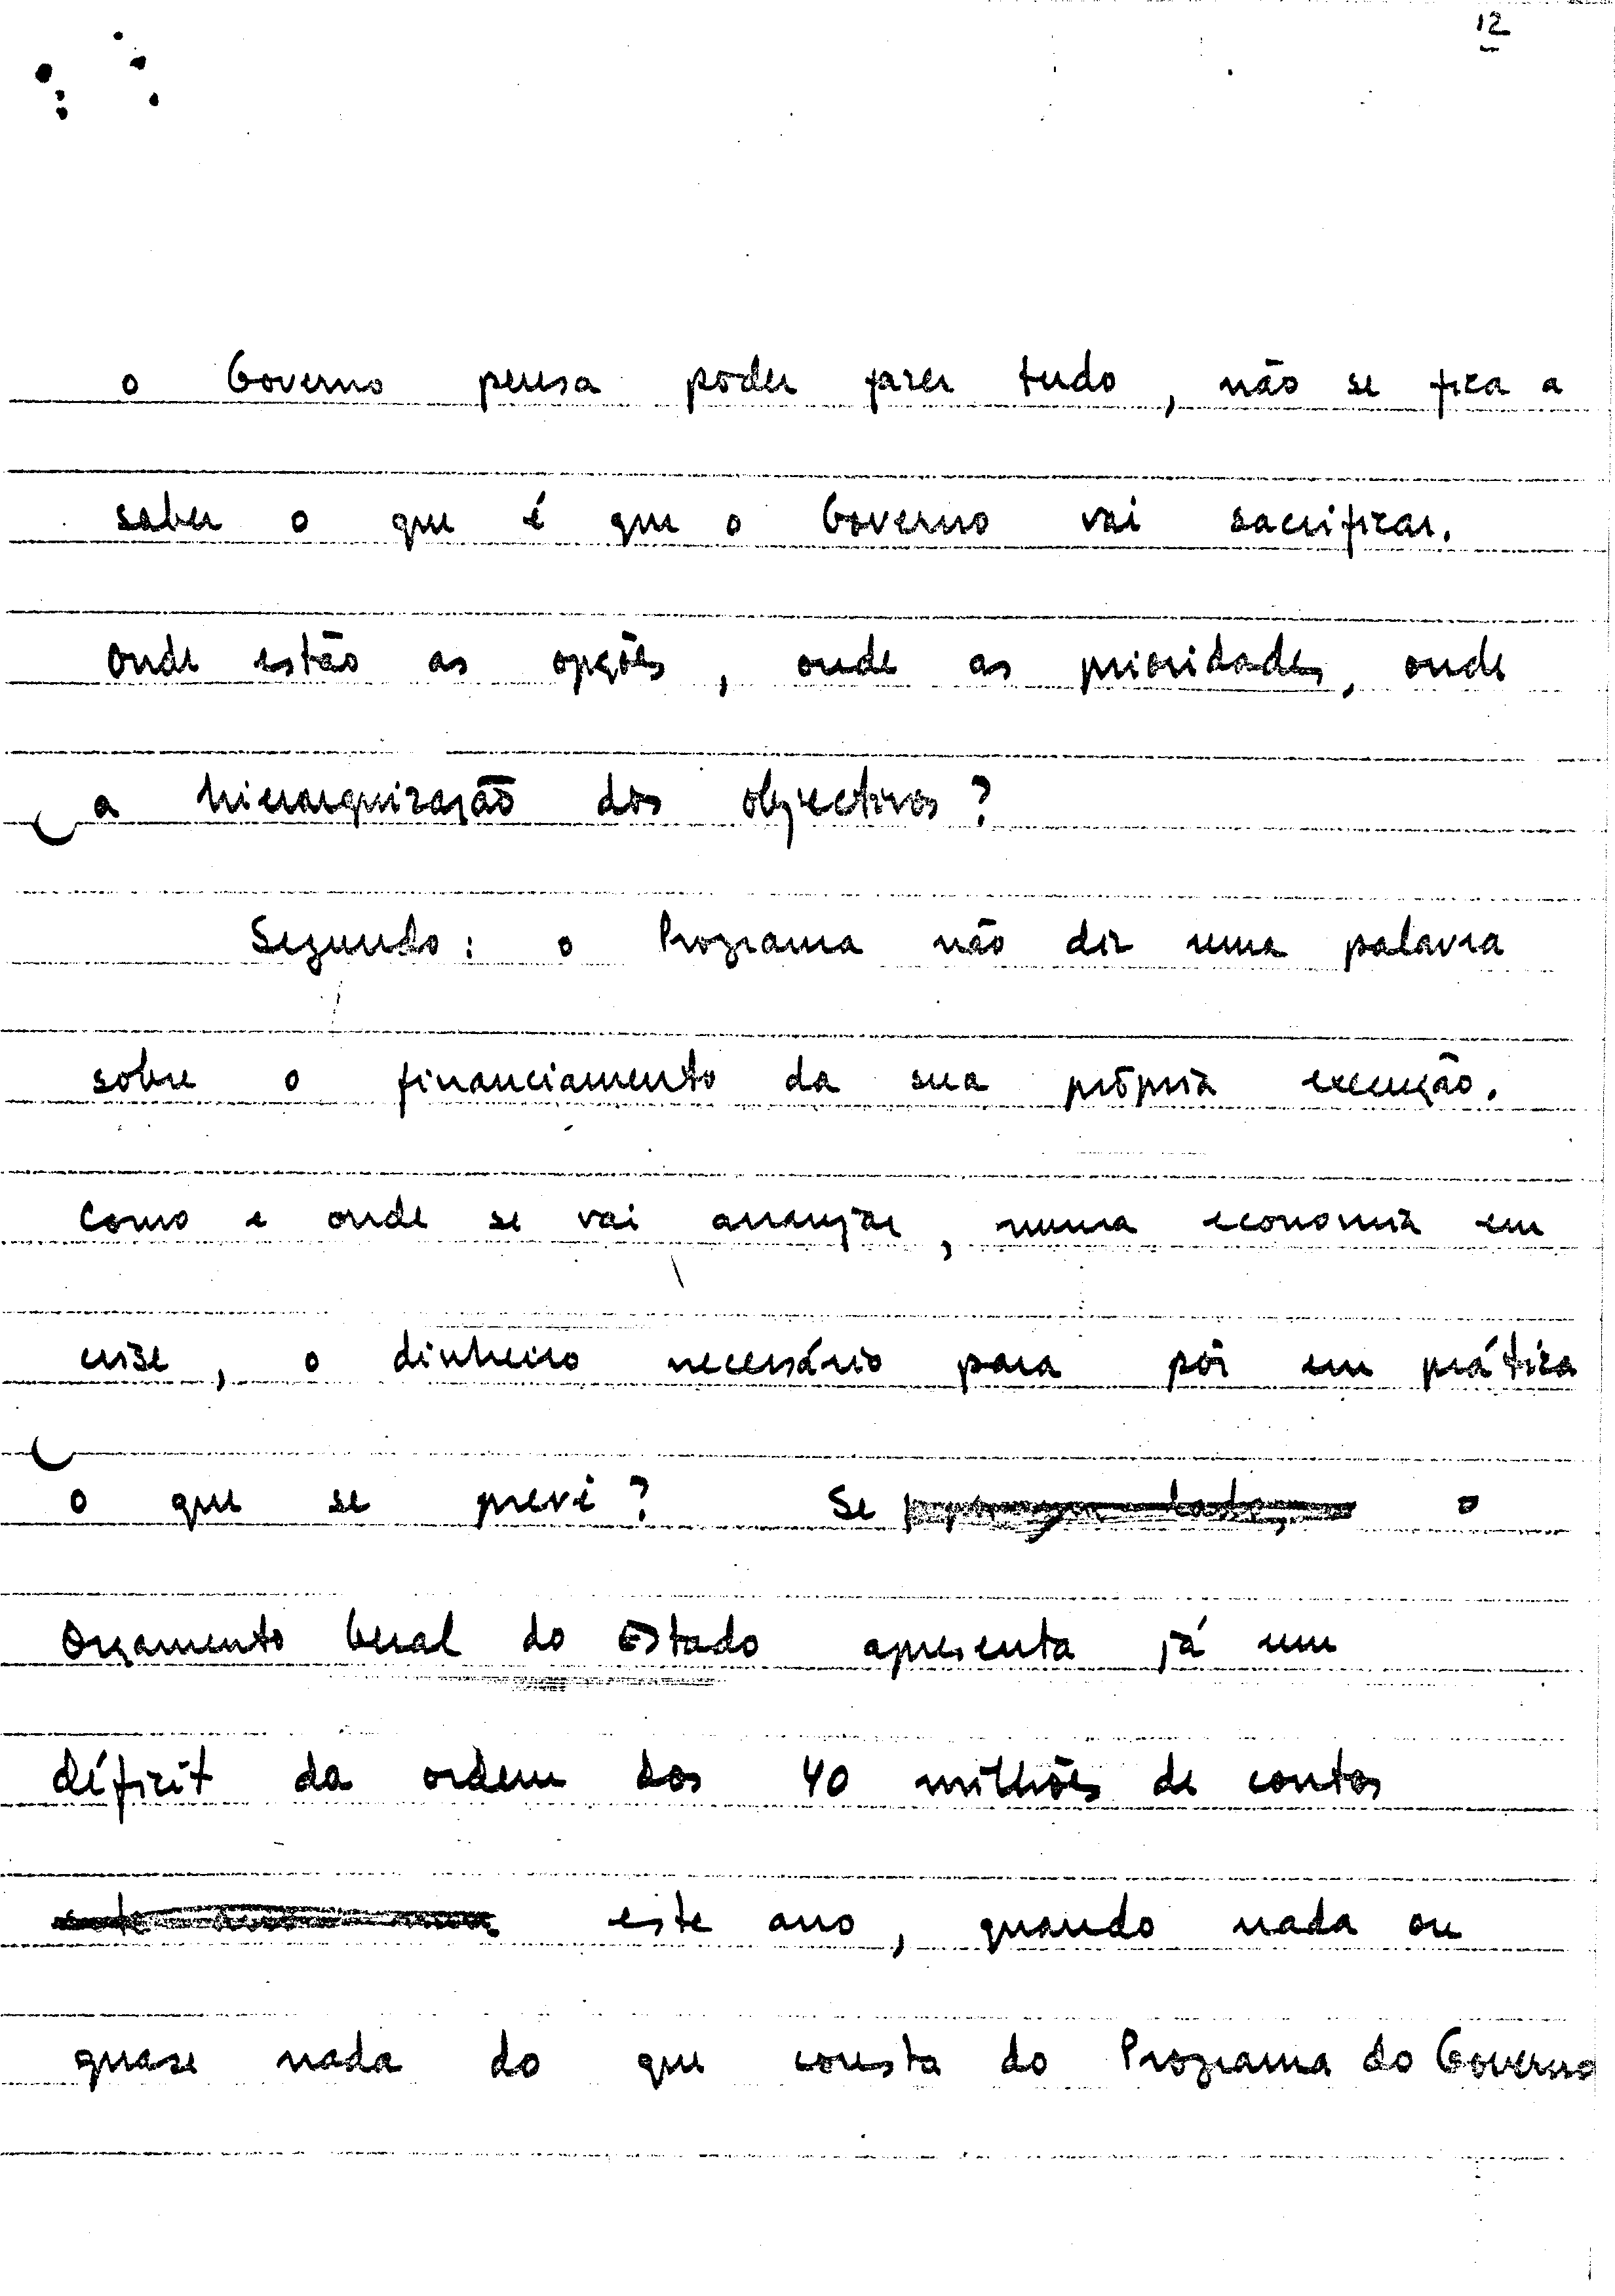 12
o Governo pensa poder fazer tudo, não se fica a
saber o que é que o Governo vai sacrificar.
Onde estão as opções, onde as prioridades, onde
a hierarquização dos objectivos?
Segundo: o Programa não diz uma palavra
sobre o financiamento da sua própria execução.
Como e onde se vai arranjar, numa economia em
crise, o dinheiro necessário para pôr em prática
o que se prevê? Se o
Orçamento Geral do Estado apresenta já um
déficit da ordem dos 40 milhões de contos
este ano, quando nada ou
quase nada do que consta do Programa do Governo